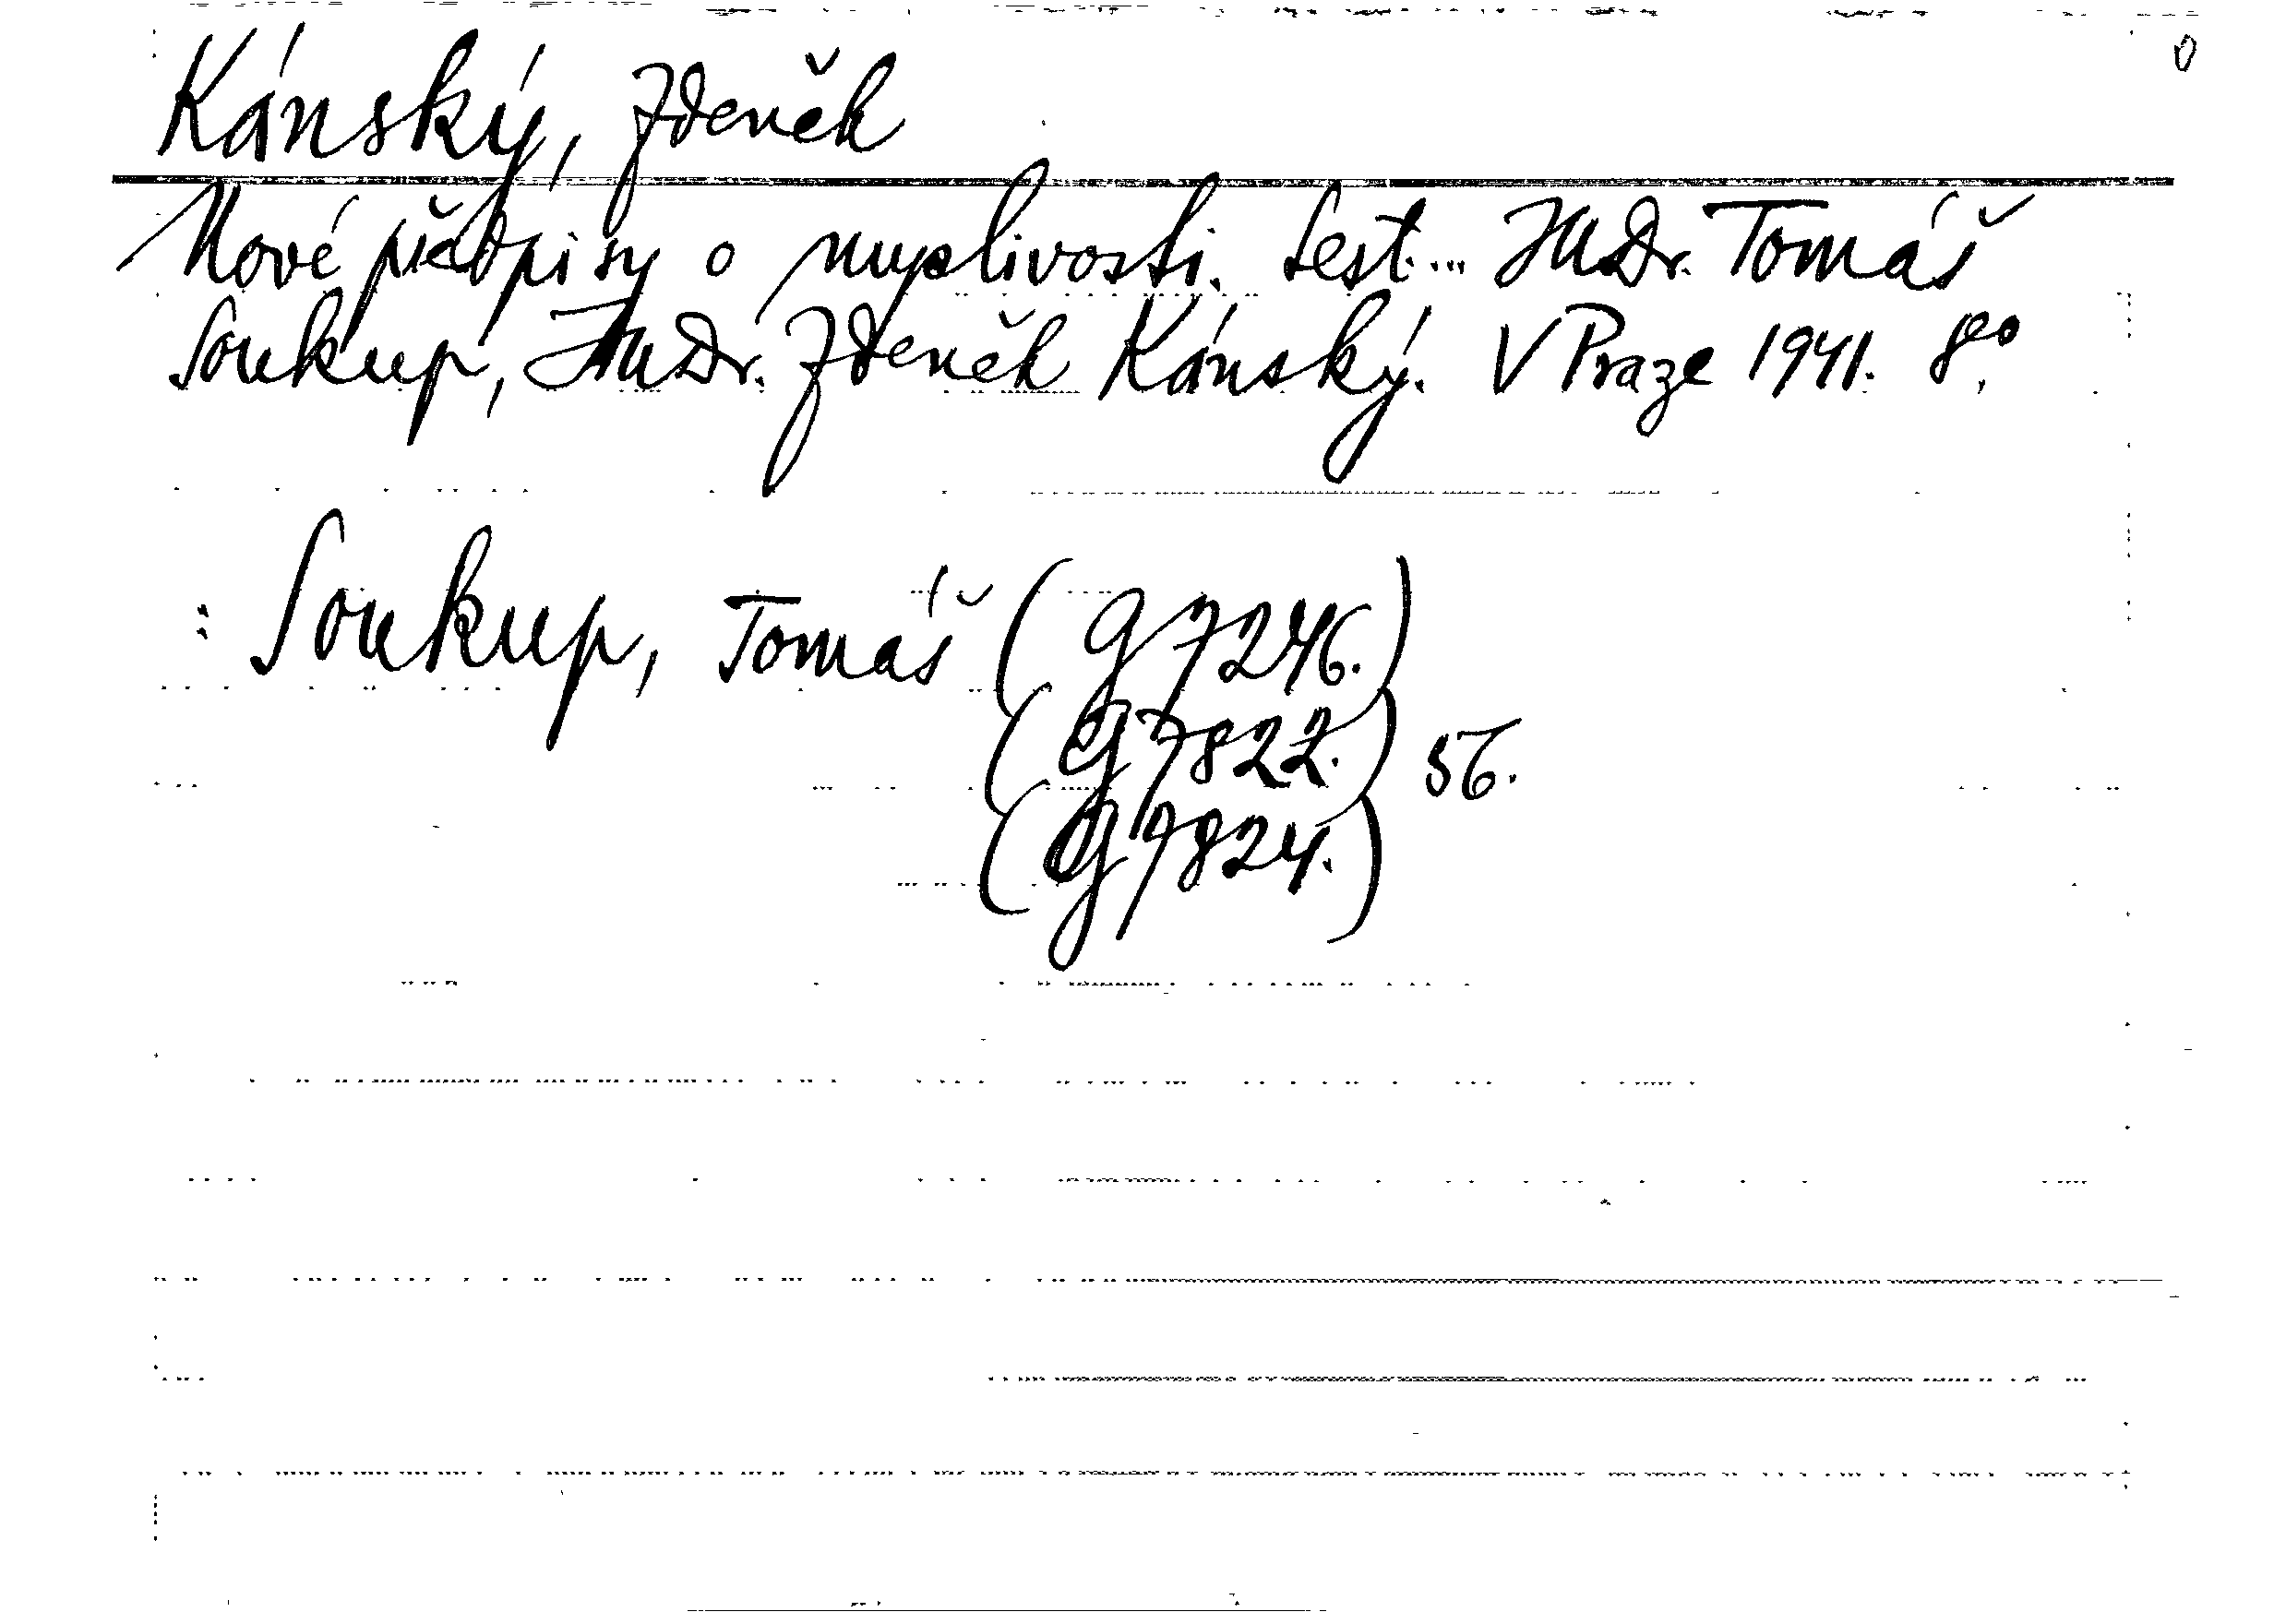 Kánský, Zdeněk
Nové předpisy o myslivosti. Sest.... JUDr. Tomáš
Soukup, JUDr. Zdeněk Kánský. V Praze 1941. 8º.
: Soukup, Tomáš (G 7246.)
(G 7822.) 56.
(G 7824.)